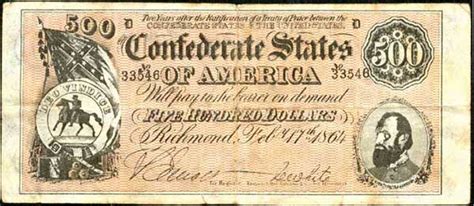 500 D Two Years after the Ratification of a Treaty of Peace between the D
CONFEDERATE STATES & THE UNITED STATES
Confederate States 500
No 33546 OF AMERICA No 33546
DEO VINDICE Will pay to the bearer on demand
FIVE HUNDRED DOLLARS
Richmond, Feby 17th 1864
for Register